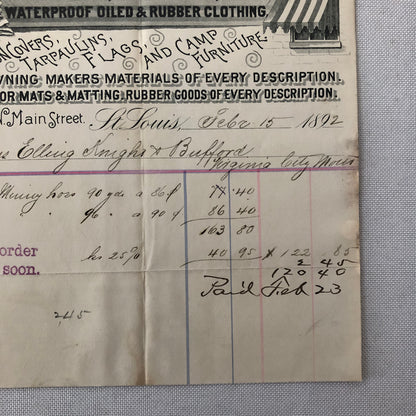 WATERPROOF OILED & RUBBER CLOTHING.
COVERS, TARPAULINS, FLAGS, AND CAMP FURNITURE.
WNING. MAKERS MATERIALS OF EVERY DESCRIPTION.
OR MATS & MATTING. RUBBER GOODS OF EVERY DESCRIPTION.
N. Main Street. St. Louis, Febr 15 1892
Elling Knight & Bufford
Virginia City Mon
hose 90 yds a 86¢ 77 40
96 " a 90¢ 86 40
163 80
order ls 25% 40 95 122 85
soon. 2 45
120 40
Paid Feb 23
245